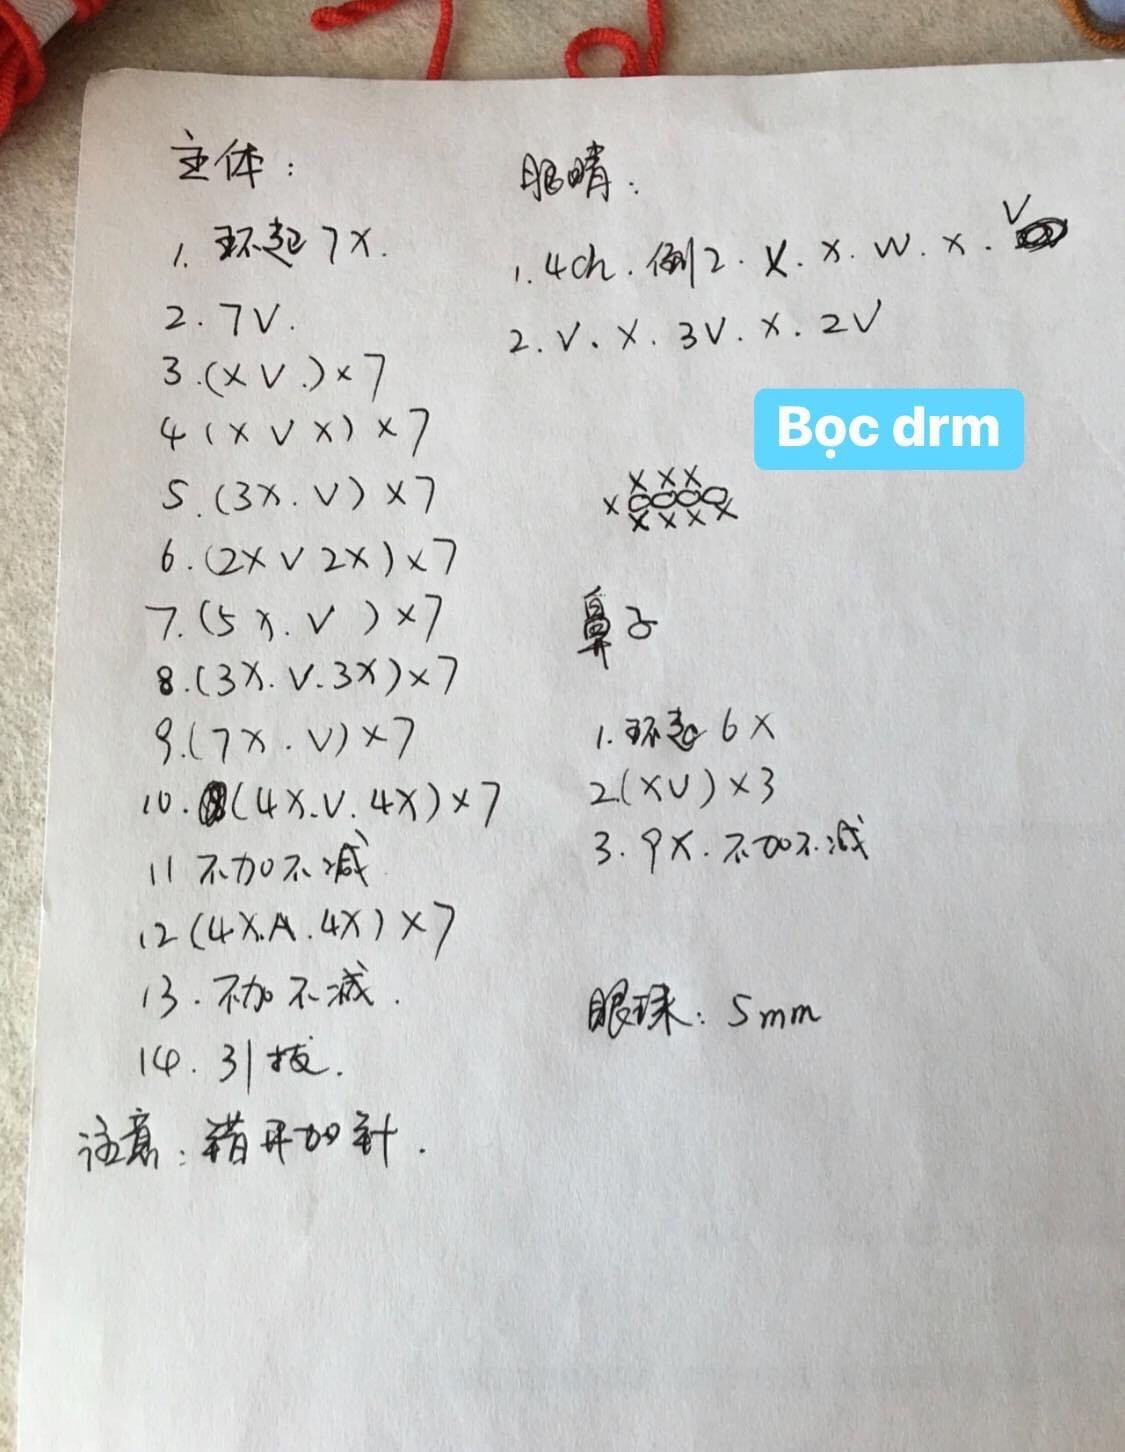 主体：
1. 环起 7X.
2. 7V.
3.(X V.)×7
4(X V X)×7
5.(3X.V)×7
6.(2X V 2X)×7
7.(5X.V)×7
8.(3X.V.3X)×7
9.(7X.V)×7
10.(4X.V.4X)×7
11 不加不减
12(4X.A.4X)×7
13.不加不减.
14.引拔.
注意：错开加针.
眼睛：
V
1.4ch.倒2.X.X.W.X.
2.V.X.3V.X.2V
Bọc drm
X X X
X
X X X X
鼻子
1.环起 6X
2(XV)×3
3.9X.不加不减
眼珠：5mm